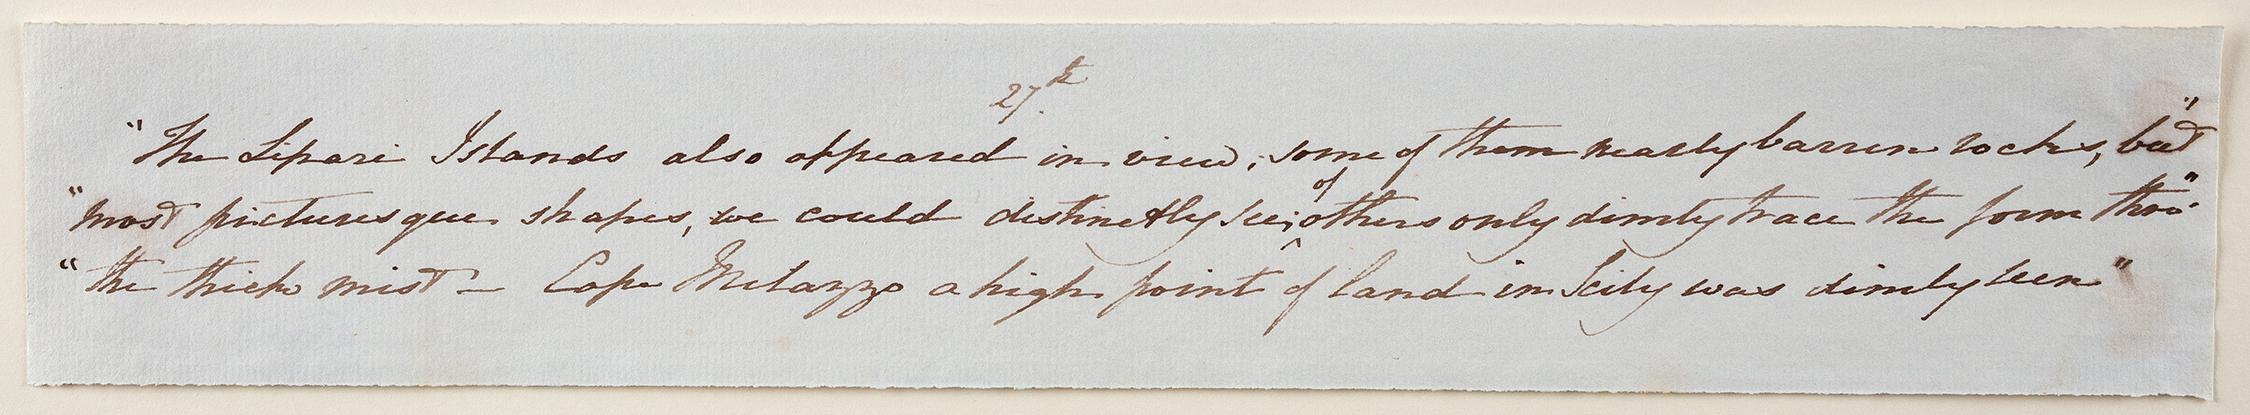 27th
"The Lipari Islands also appeared in view; some of them nearly barren rocks, but"
"most picturesque shapes, we could distinctly see; of others only dimly trace the form thro'"
"the thick mist – Cape Melazzo a high point of land in Scily was dimly seen"